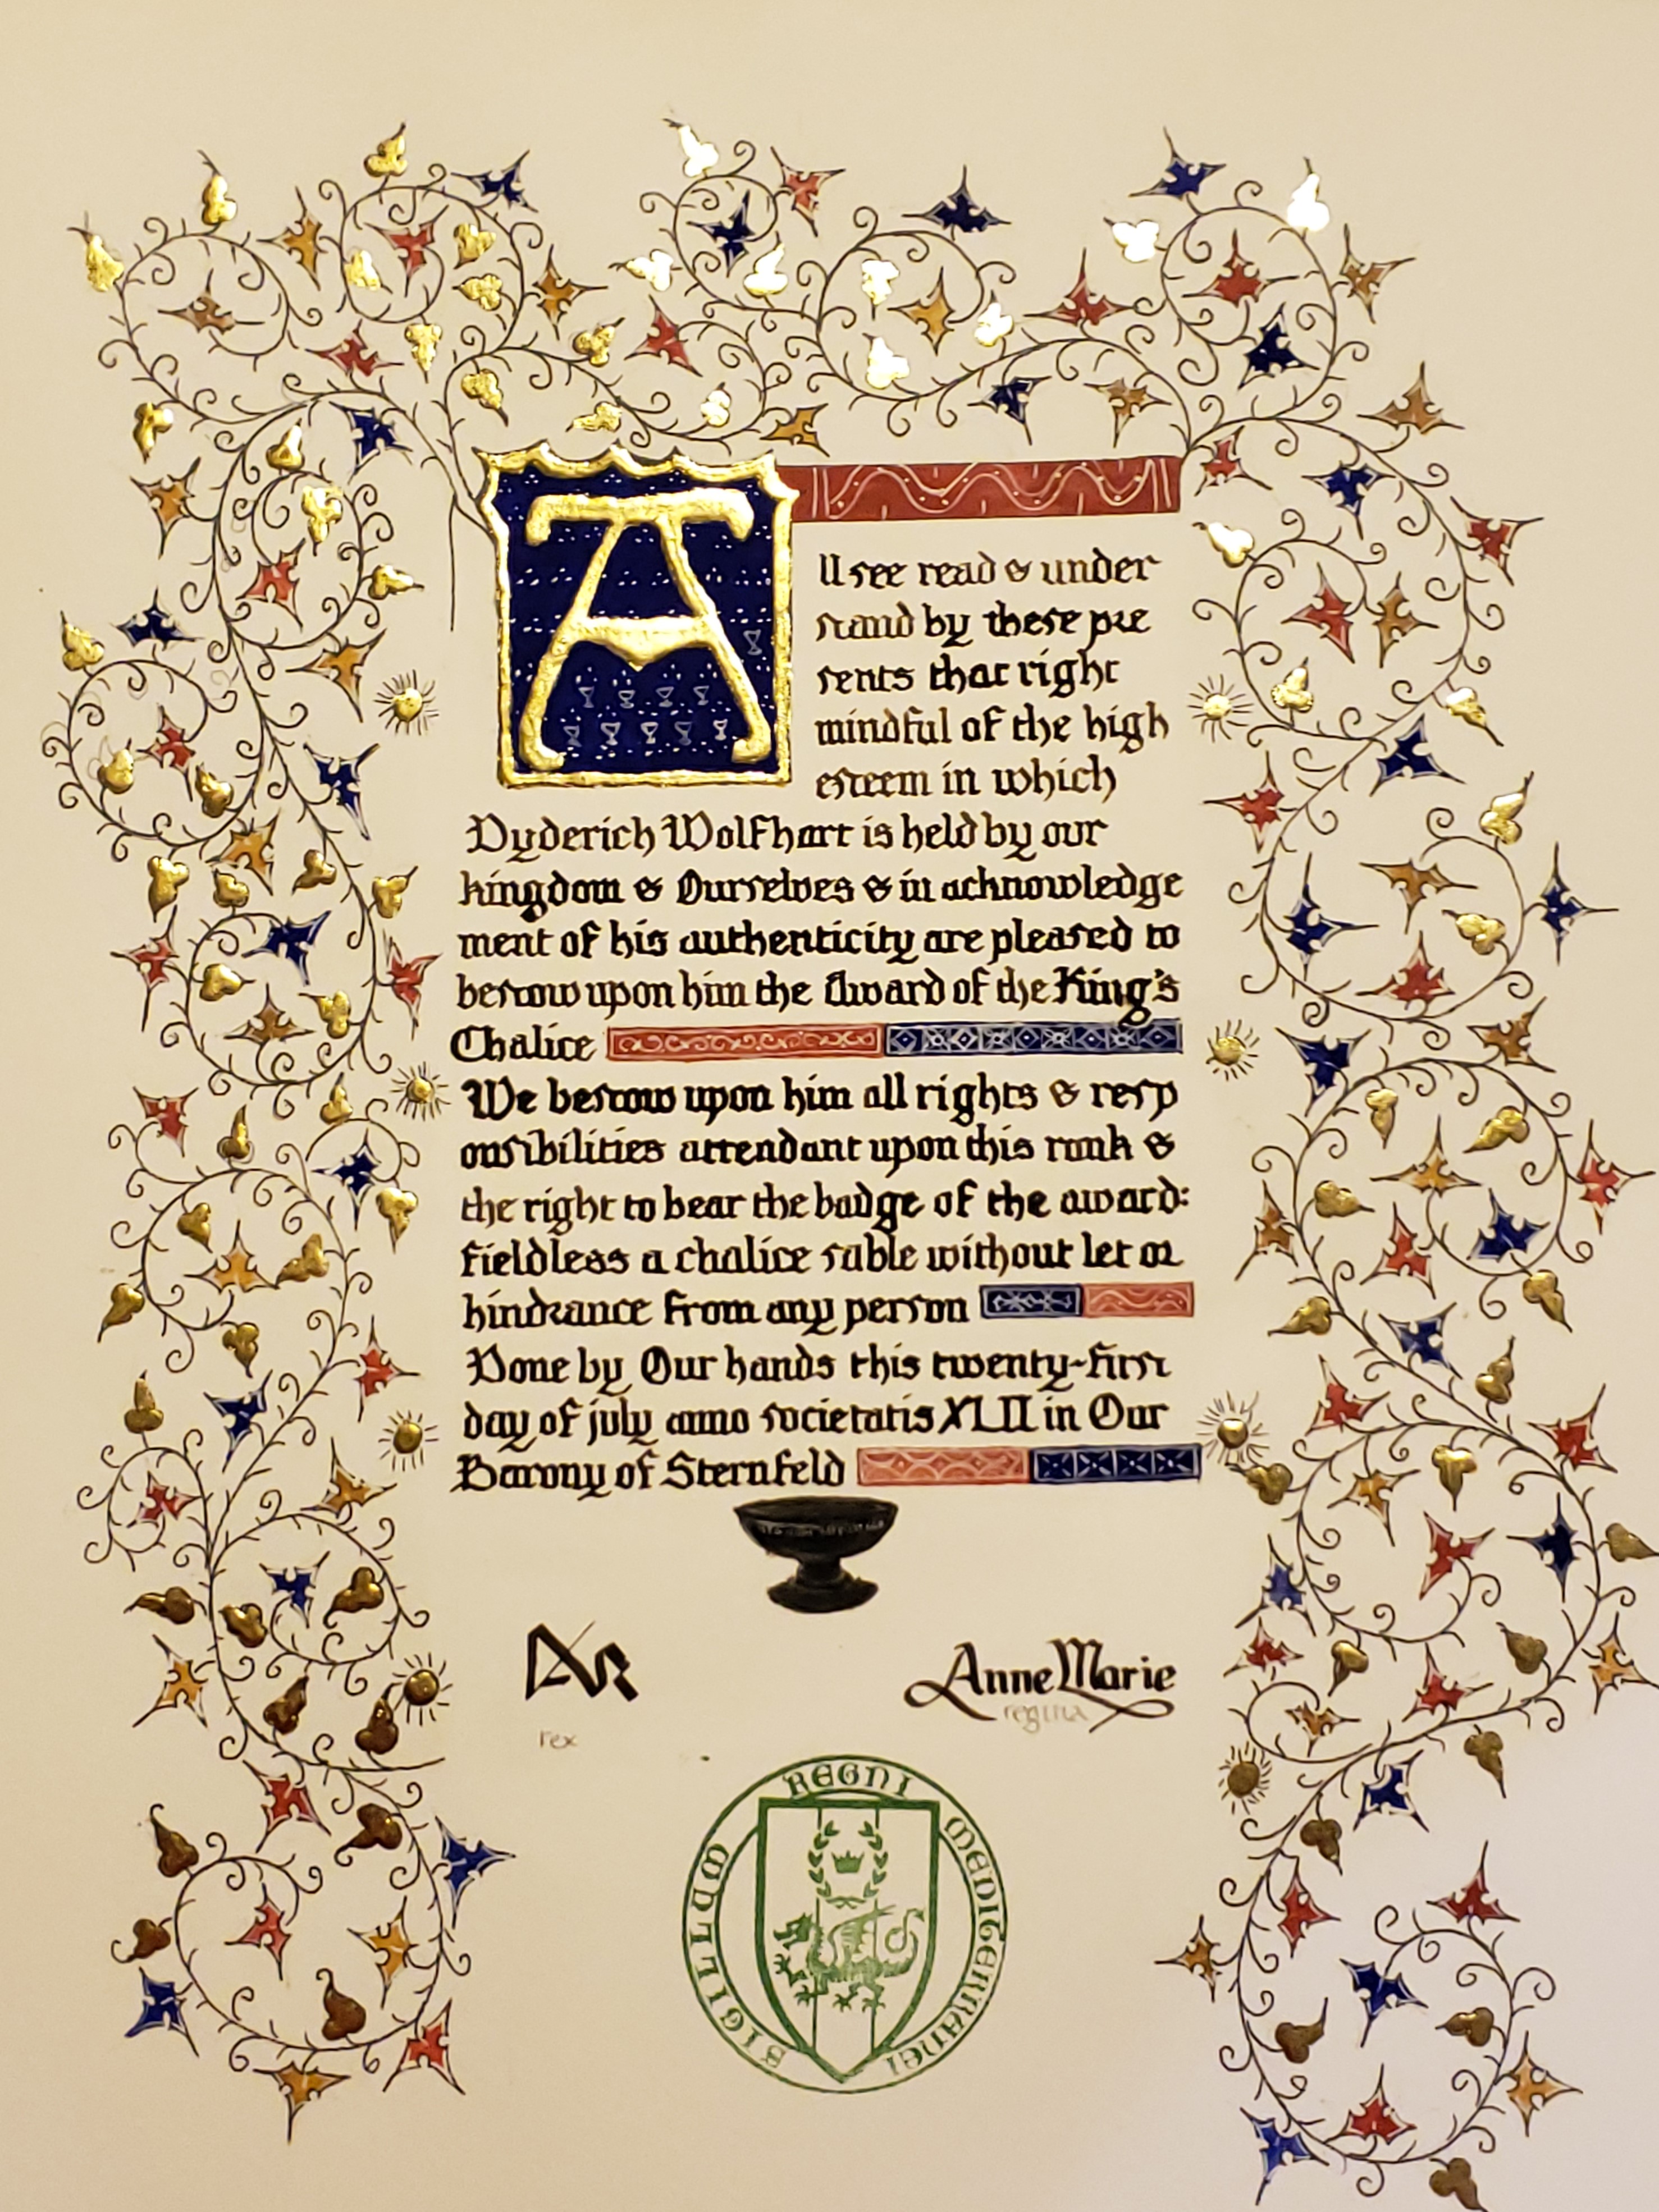 All see read & under
stand by these pre
sents that right
mindful of the high
esteem in which
Dyderich Wolfhart is held by our
kingdom & Ourselves & in acknowledge
ment of his authenticity are pleased to
bestow upon him the Award of the King's
Chalice
We bestow upon him all rights & resp
onsibilities attendant upon this rank &
the right to bear the badge of the award:
fieldless a chalice sable without let or
hindrance from any person
Done by Our hands this twenty-first
day of july anno societatis XLII in Our
Barony of Sternfeld
Anne Marie
rex
regina
SIGILLUM REGNI MEDITERRANEI